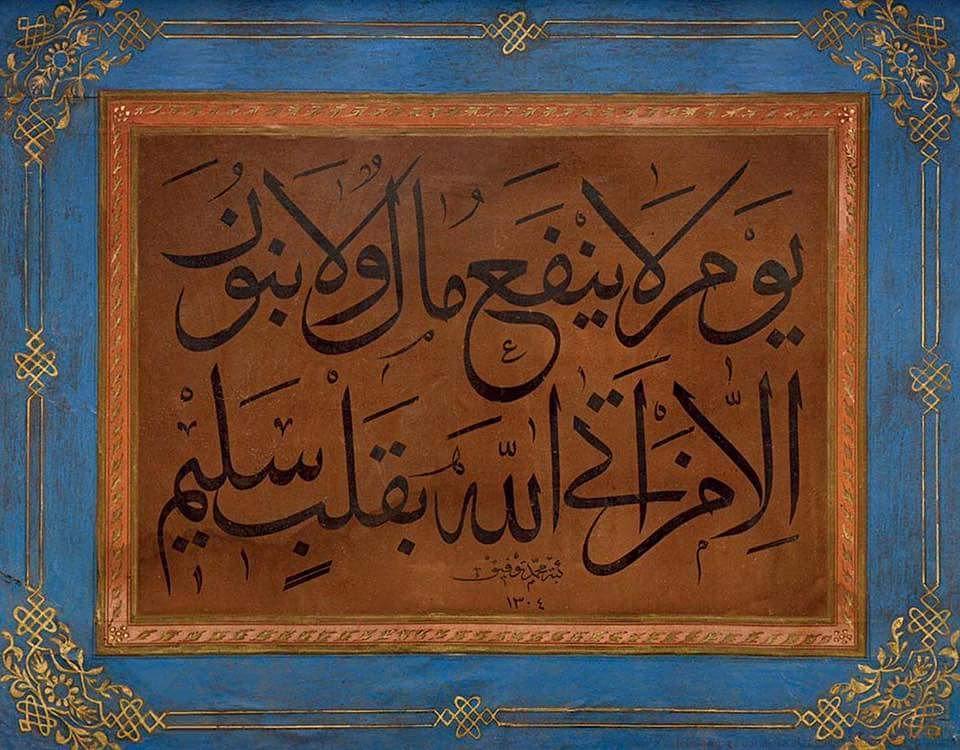 يَوْمَ لَا يَنْفَعُ مَالٌ وَلَا بَنُونَ
اِلَّا مَنْ اَتَى اللّٰهَ بِقَلْبٍ سَلِيمٍ
محمد توفيق
١٣٠٤